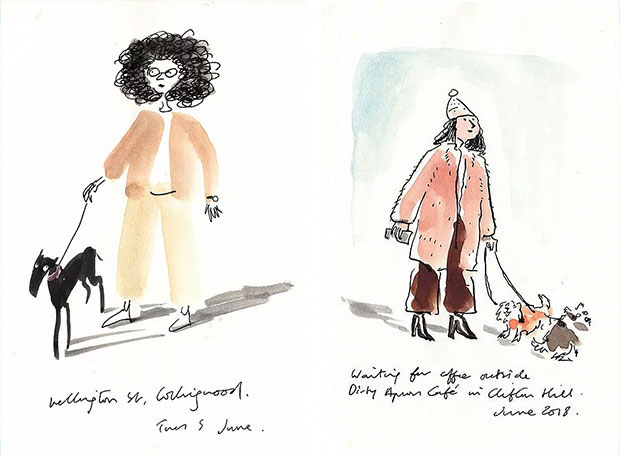 Wellington St, Collingwood.
Tues 5 June.
Waiting for coffee outside
Dirty Apron Café in Clifton Hill.
June 2018.